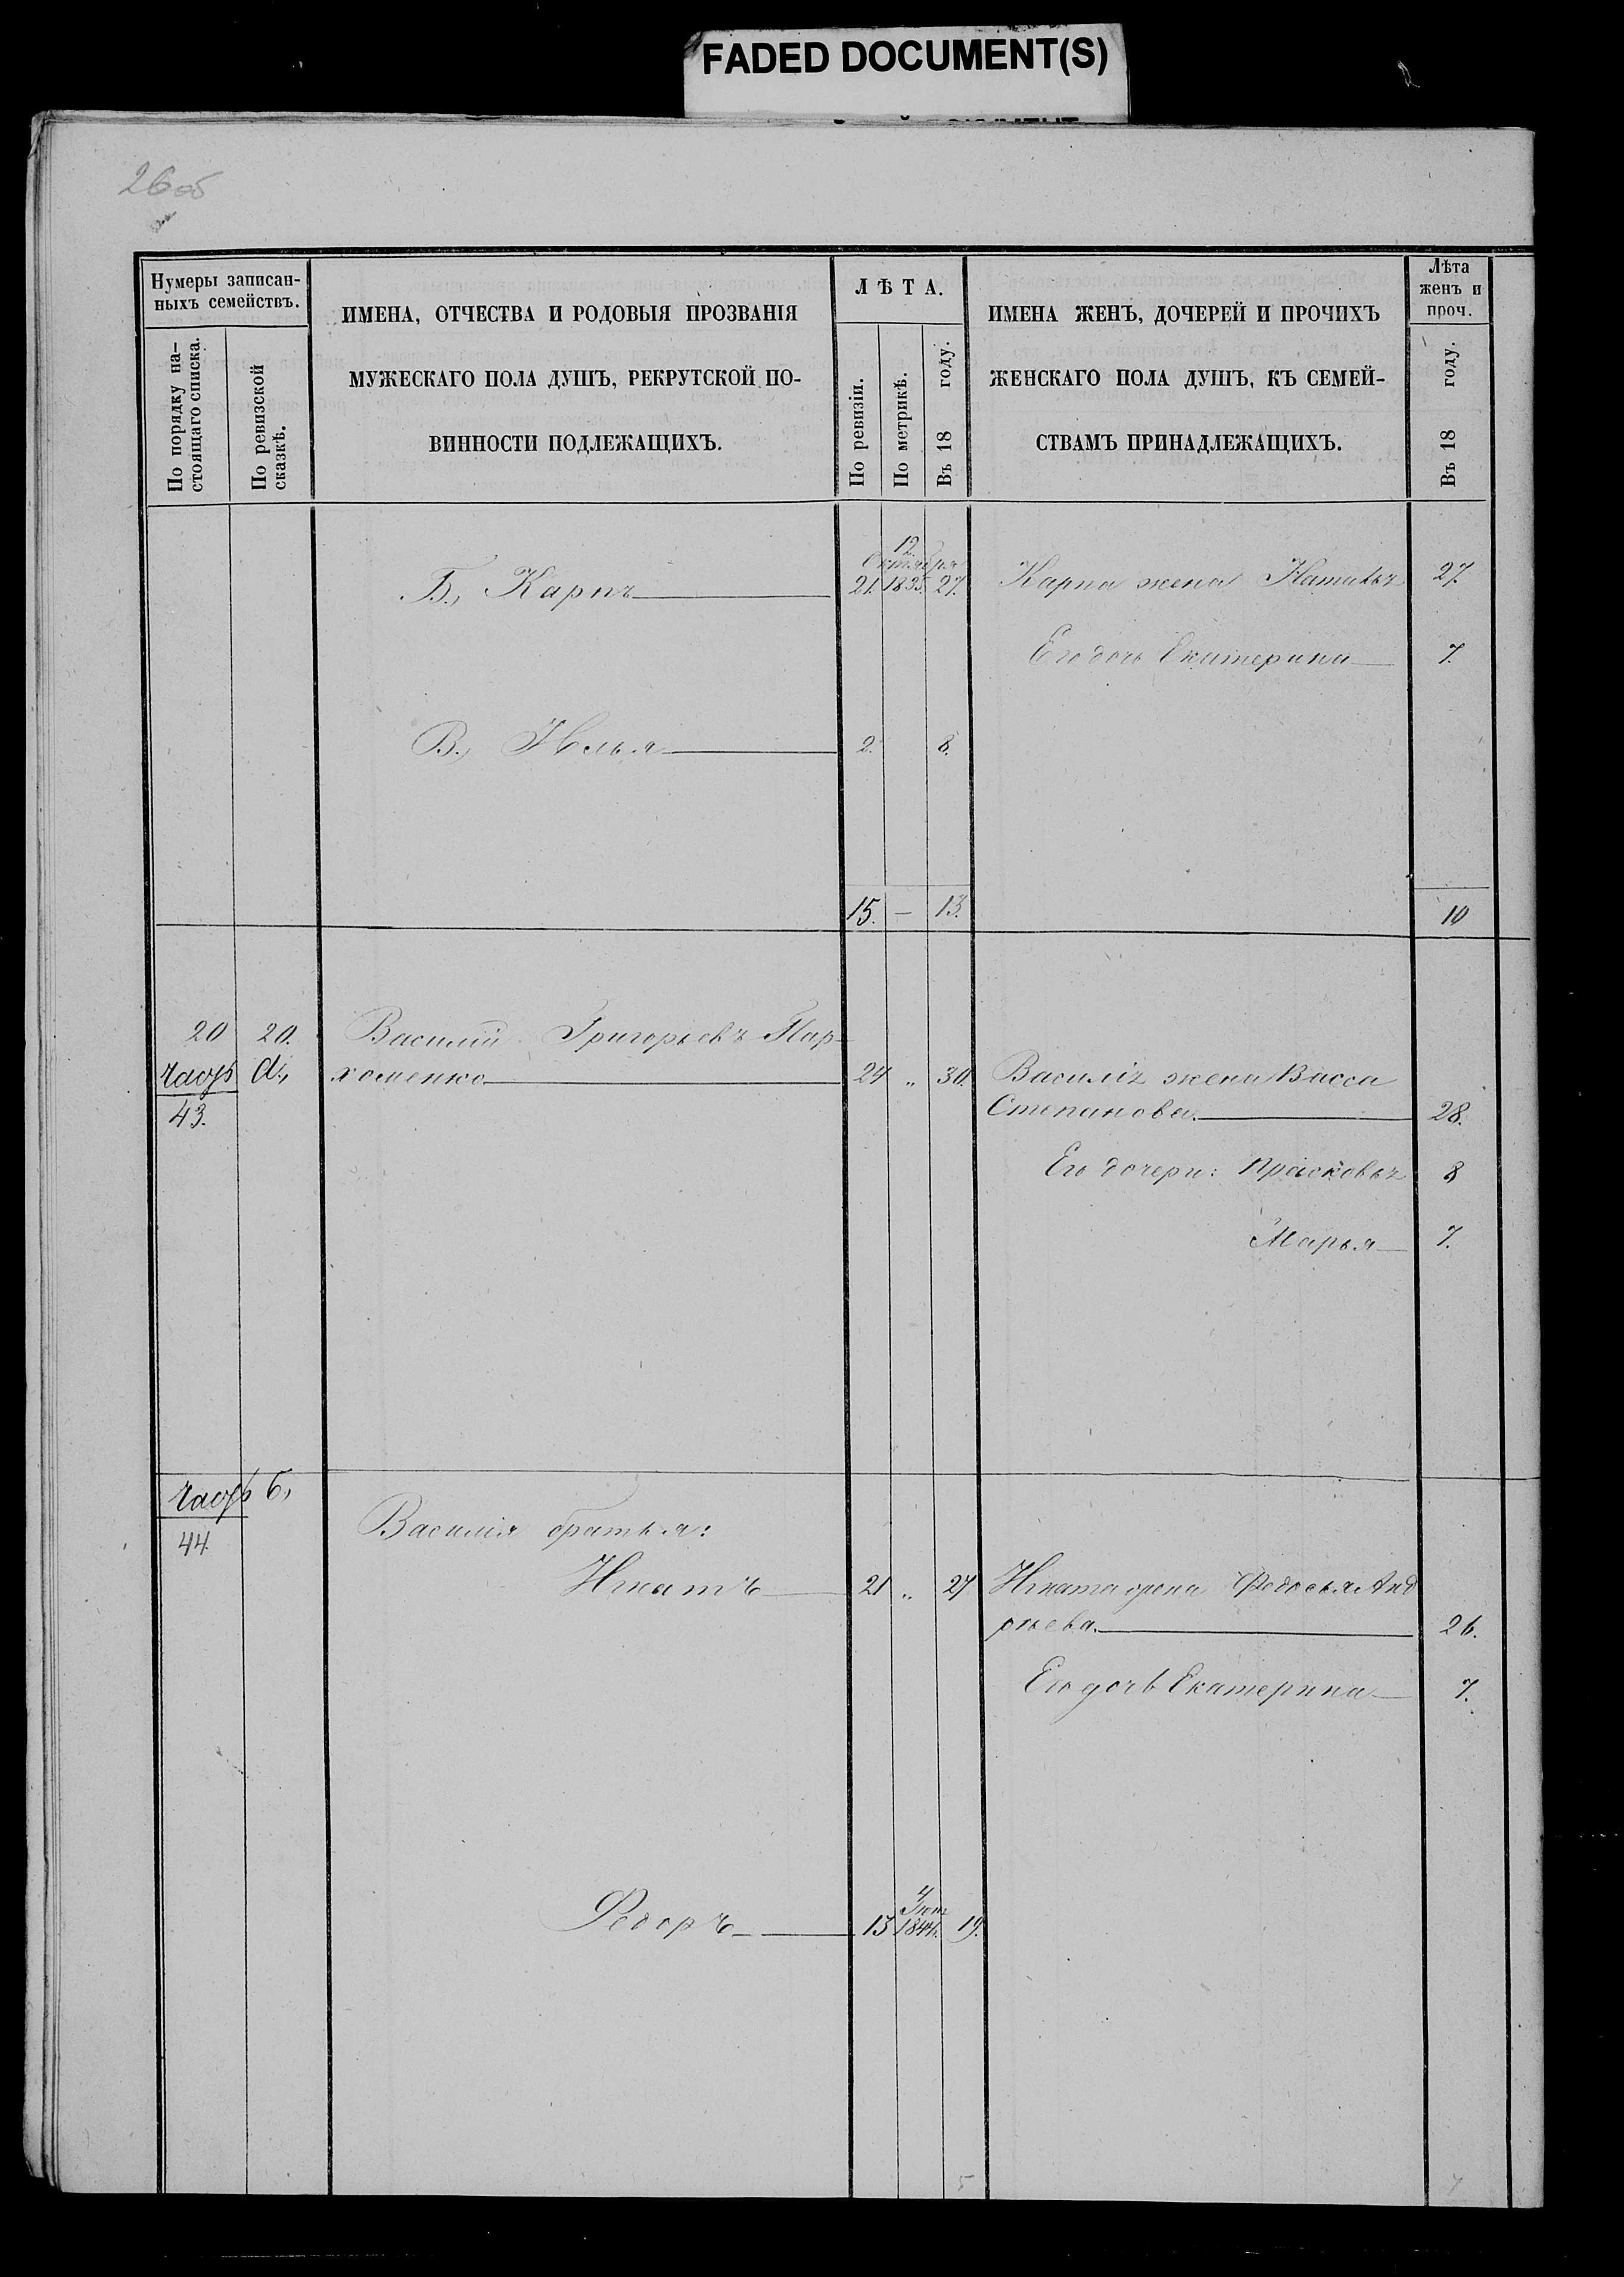 FADED DOCUMENT(S)
26об
Нумеры записан-
ныхъ семействъ.
По порядку на-
стоящаго списка.
По ревизской
сказкѣ.
ИМЕНА, ОТЧЕСТВА И РОДОВЫЯ ПРОЗВАНІЯ
МУЖЕСКАГО ПОЛА ДУШЪ, РЕКРУТСКОЙ ПО-
ВИННОСТИ ПОДЛЕЖАЩИХЪ.
ЛѢТА.
По ревизіи.
По метрикѣ.
Въ 18 году.
ИМЕНА ЖЕНЪ, ДОЧЕРЕЙ И ПРОЧИХЪ
ЖЕНСКАГО ПОЛА ДУШЪ, КЪ СЕМЕЙ-
СТВАМЪ ПРИНАДЛЕЖАЩИХЪ.
Лѣта
женъ и
проч.
Въ 18 году.
12
Октября
Б., Карпъ 21. 1835. 27. Карпа жена Наталья 27.
Его дочь Екатерина 7.
В., Илья 2. 8.
15. — 13. 10
20 20. Василій Григорьевъ Пар-
часть а., хоменко 24 „ 30. Василія жена Васса
43. Степанова. 28.
Его дочери: Прасковья 8
Марья 7.
часть б,
44. Василія братья:
Игнатъ 21 „ 27 Игната жена Федосья Анд
рѣева. 26.
Его дочь Екатерина 7.
4
Федоръ 13 1844. 19.
5 7